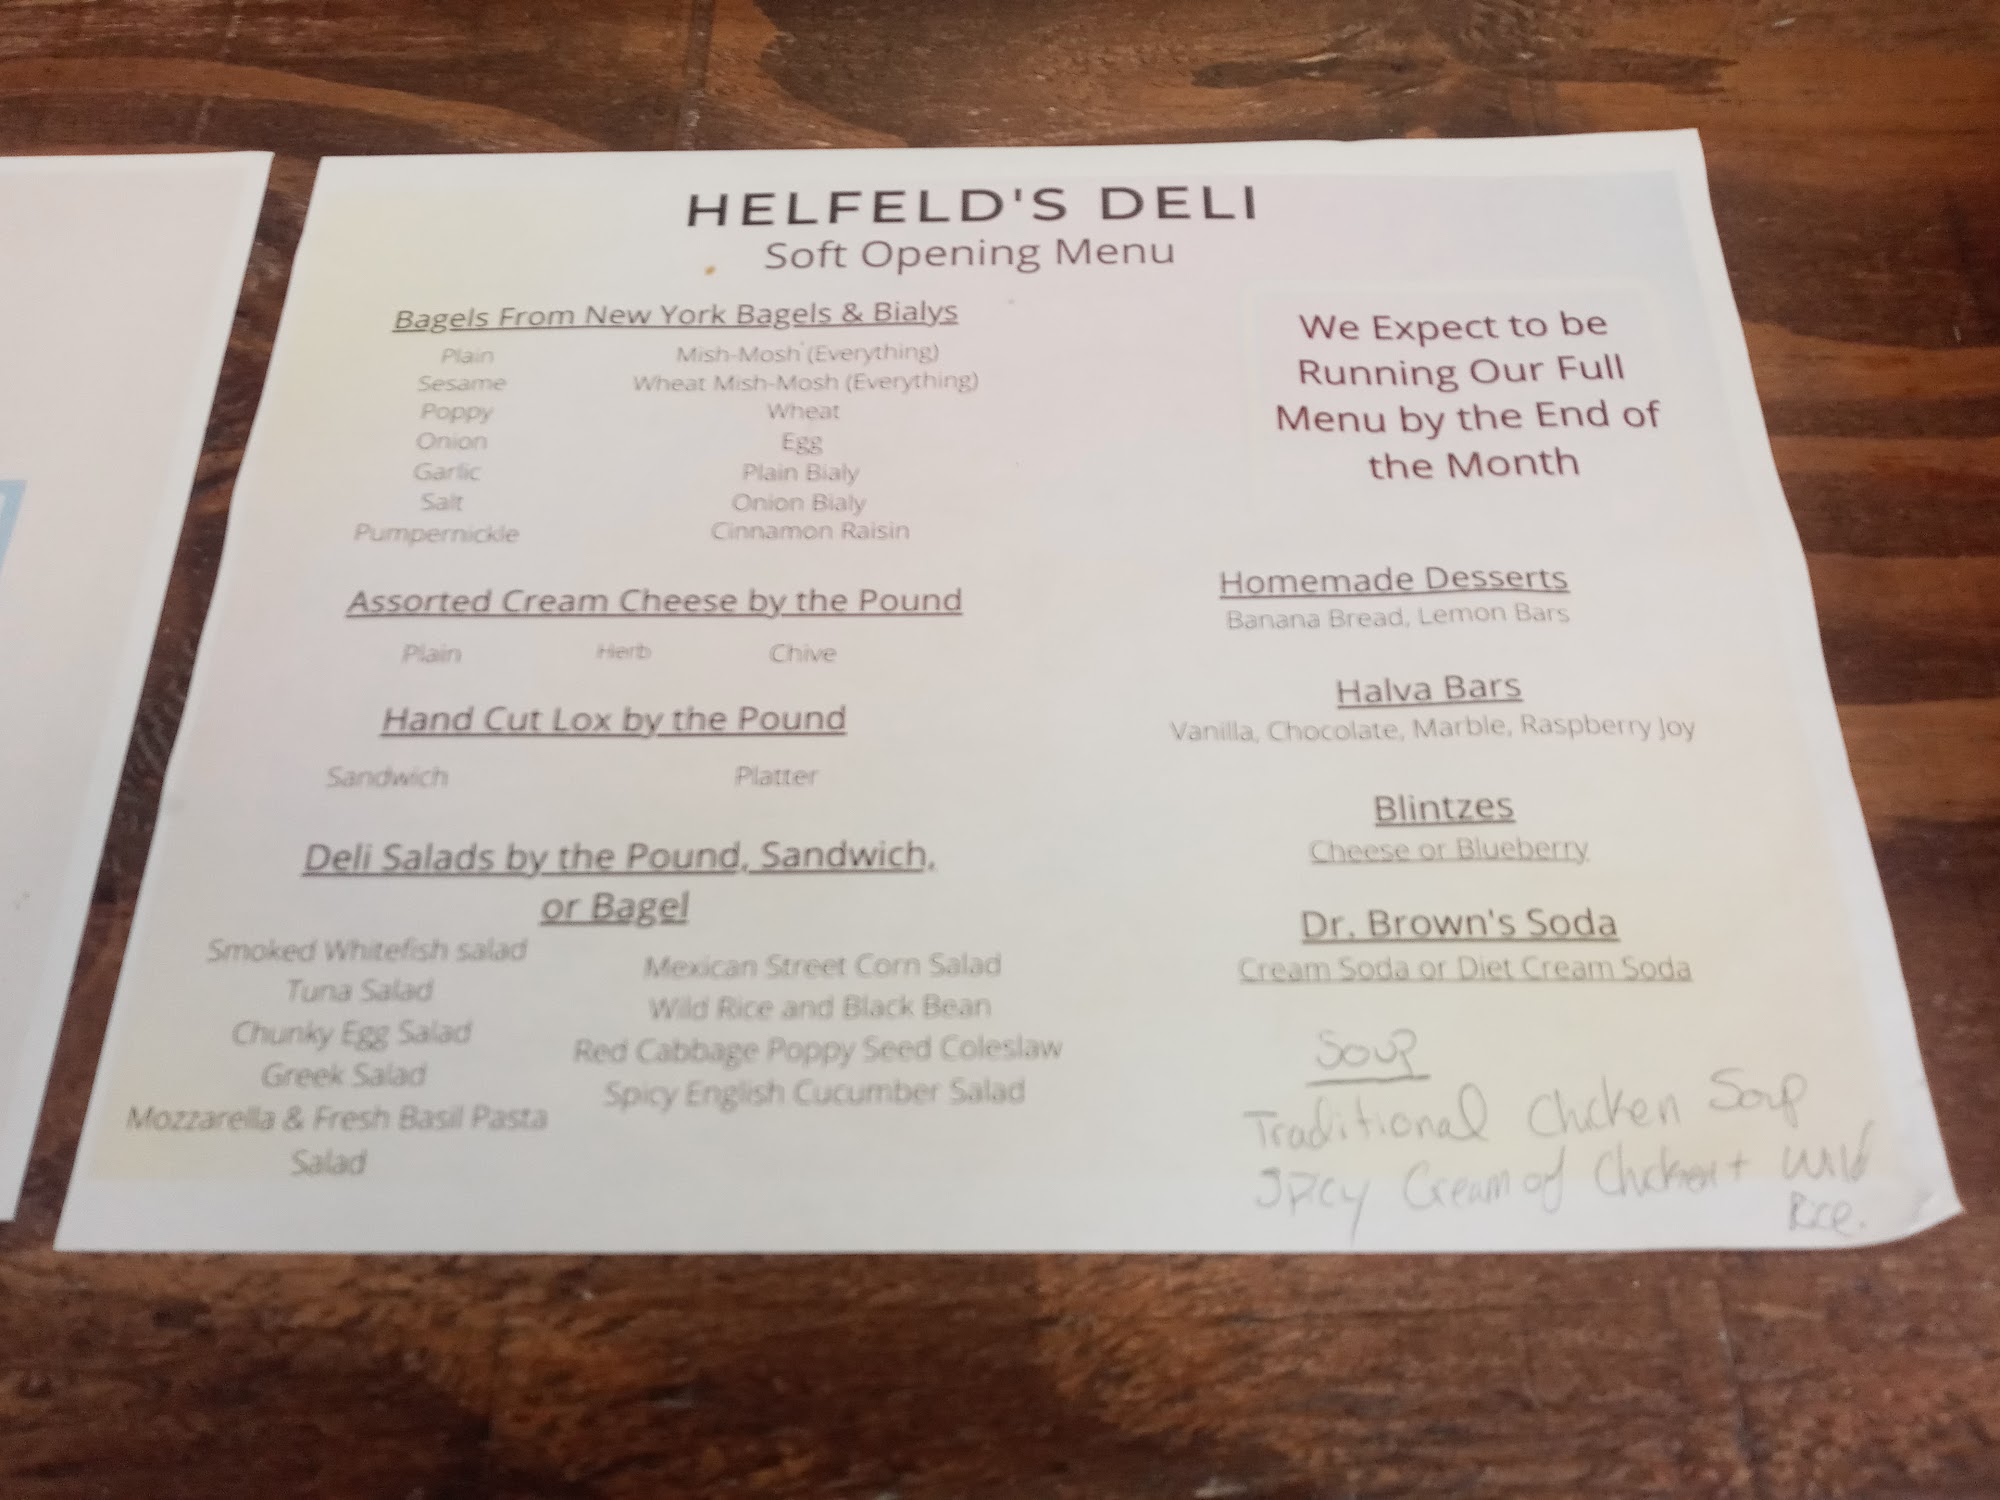 HELFELD'S DELI
Soft Opening Menu
Bagels From New York Bagels & Bialys
Plain
Sesame
Poppy
Onion
Garlic
Salt
Pumpernickle
Mish-Mosh (Everything)
Wheat Mish-Mosh (Everything)
Wheat
Egg
Plain Bialy
Onion Bialy
Cinnamon Raisin
Assorted Cream Cheese by the Pound
Plain Herb Chive
Hand Cut Lox by the Pound
Sandwich Platter
Deli Salads by the Pound, Sandwich,
or Bagel
Smoked Whitefish salad
Tuna Salad
Chunky Egg Salad
Greek Salad
Mozzarella & Fresh Basil Pasta
Salad
Mexican Street Corn Salad
Wild Rice and Black Bean
Red Cabbage Poppy Seed Coleslaw
Spicy English Cucumber Salad
We Expect to be
Running Our Full
Menu by the End of
the Month
Homemade Desserts
Banana Bread, Lemon Bars
Halva Bars
Vanilla, Chocolate, Marble, Raspberry Joy
Blintzes
Cheese or Blueberry
Dr. Brown's Soda
Cream Soda or Diet Cream Soda
Soup
Traditional Chicken Soup
Spicy Cream of Chicken + Wild
Rice.